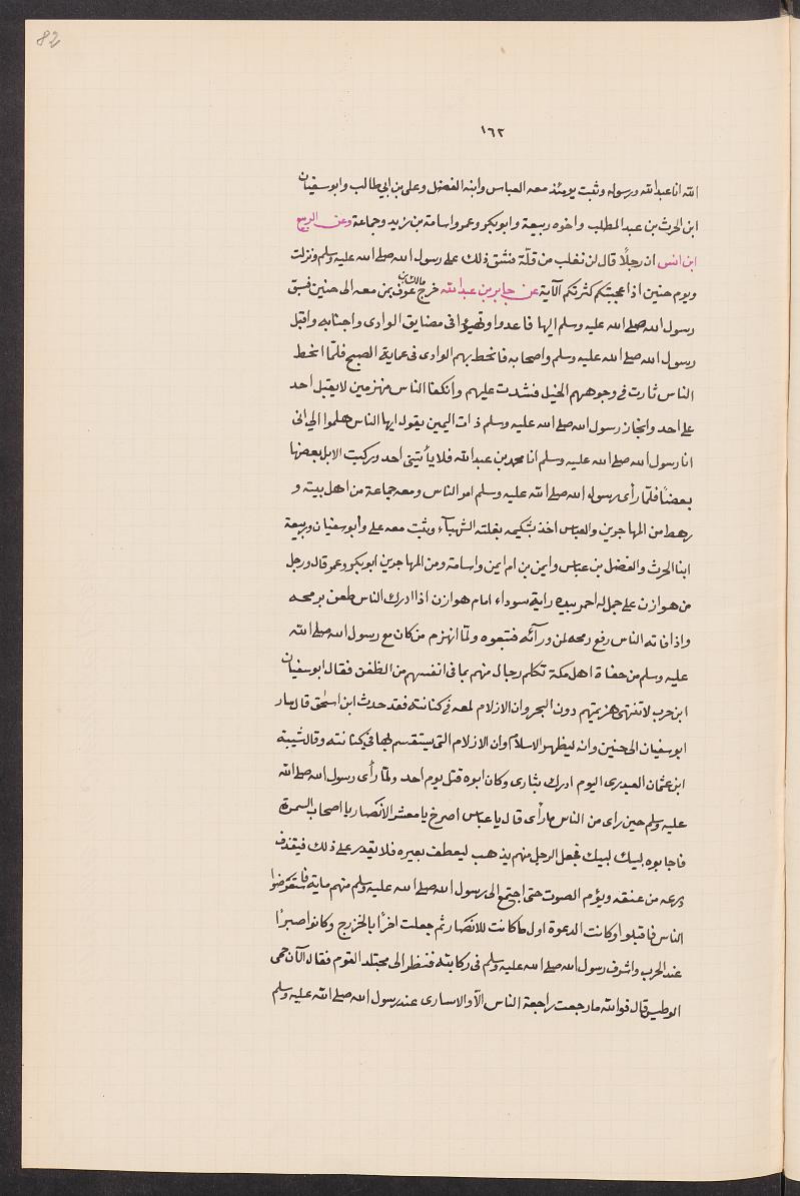 82
١٦٢
الله انا عبد الله ورسوله وثبت يومئذ معه العباس وابنه الفضل وعلى بن ابي طالب وابو سفيان
ابن الحرث بن عبد المطلب واخوه ربيعة وابو بكر وعمر واسامة بن زيد وجماعة وعن الربيع
ابن انس ان رجلاً قال لن نغلب من قلّة فشق ذلك على رسول الله صلى الله عليه وسلم ونزلت
ويوم حنين اذ اعجبتكم كثرتكم الآية عن جابر بن عبد الله خرج مالك بن عوف بمن معه الى حنين فسبق
رسول الله صلى الله عليه وسلم اليها فاعدوا وتهيئوا فى مضايق الوادى واجنابه واقبل
رسول الله صلى الله عليه وسلم واصحابه فانحط بهم الوادى فى عماية الصبح فلمّا انحط
الناس ثارت فى وجوههم الخيل فشدت عليهم وانكفأ الناس منهزمين لا يقبل احد
على احد وانحاز رسول الله صلى الله عليه وسلم ذات اليمين يقول ايها الناس هلموا الي انى
انا رسول الله صلى الله عليه وسلم انا محمد بن عبد الله فلا يأتينى احد وركبت الابل بعضها
بعضاً فلمّا رأى رسول الله صلى الله عليه وسلم امر الناس ومعه جماعة من اهل بيته و
رهط من المهاجرين والعباس اخذ بشكيمه بغلته الشهبآء وثبت معه على وأبو سفيان وربيعة
ابنا الحرث والفضل بن عباس وايمن بن ام ايمن واسامة ومن المهاجرين ابو بكر وعمر قال ورجل
من هوازن على جمل له احمر بيده راية سوداء امام هوازن اذا ادرك الناس طعن برمحه
واذا فاته الناس رفع رمحه لمن ورآئه فتبعوه ولمّا انهزم من كان مع رسول الله صلى الله
عليه وسلم من حفاة اهل مكة تكلم رجال منهم بما فى انفسهم من الظغن فقال ابو سفيان
ابن حرب لا تنتهى هزيمتهم دون البحر وان الازلام لمعه فى كنانته فقد حدث ابن اسحق قال سار
ابو سفيان الى حنين وانه ليظهر الاسلام وان الازلام التى يستقسم بها فى كنانته وقال شيبة
ابن عثمان العبدرى اليوم ادرك بثارى وكان ابوه قتل يوم احد ولمّا رأى رسول الله صلى الله
عليه وسلم حين راى من الناس ما رأى قال يا عباس اصرخ يا معشر الانصار يا اصحاب السمرة
فاجابوه لبيك لبيك فجعل الرجل منهم يذهب ليعطف بعيره فلا يقدر على ذلك فيقذف
درعه من عنقه ويؤم الصوت حتى اجتمع الى رسول الله صلى الله عليه وسلم منهم ماية فاستعرضوا
الناس فاقتلوا وكانت الدعوة اول ما كانت للانصار ثم جعلت اخرًا بالخزرج وكانوا صبرًا
عند الحرب واشرف رسول الله صلى الله عليه وسلم فى ركابته فنظر الى مجتلد القوم فقال الآن حمى
الوطيس قال فوالله ما رجعت راجعة الناس الّا والاسارى عند رسول الله صلى الله عليه وسلم